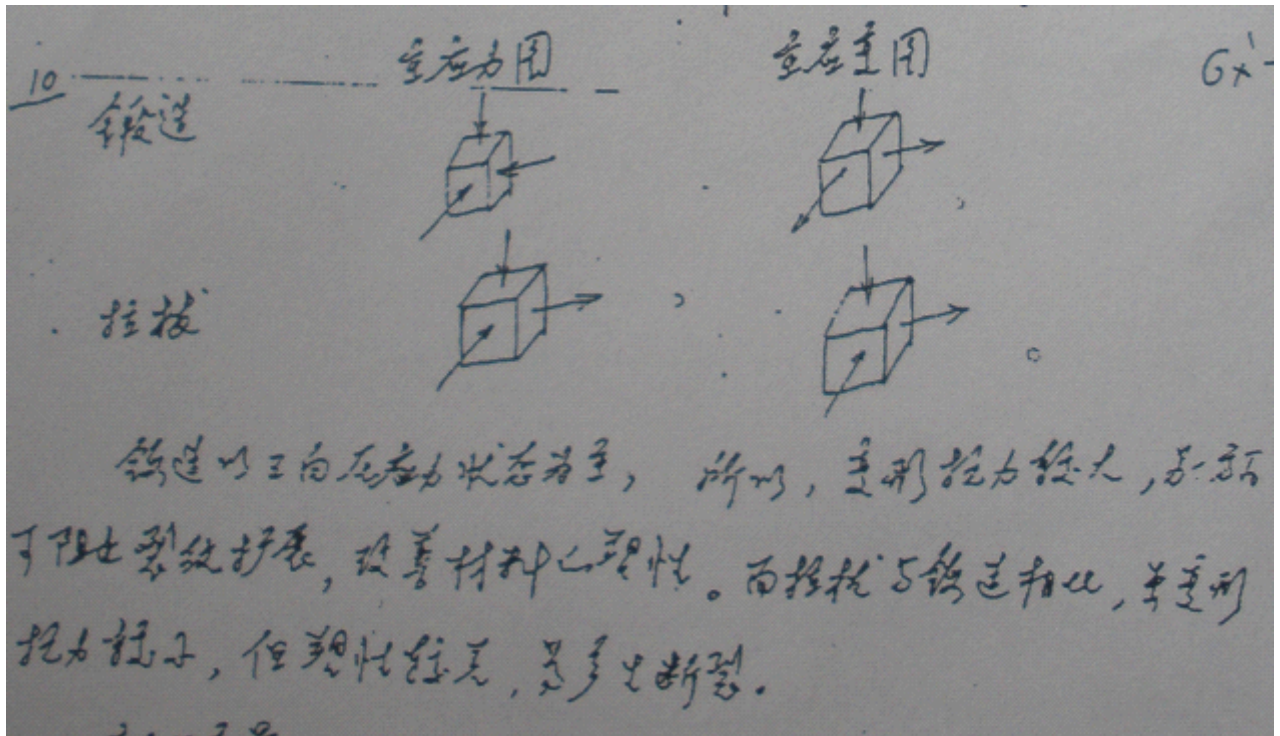 10 主应力图 主应变图
锻造
拉拔
锻造以三向压应力状态为主, 所以, 变形抗力较大, 另一方面
可阻止裂纹扩展, 改善材料的塑性。而拉拔与锻造相比, 其变形
抗力较小, 但塑性较差, 易产生断裂。